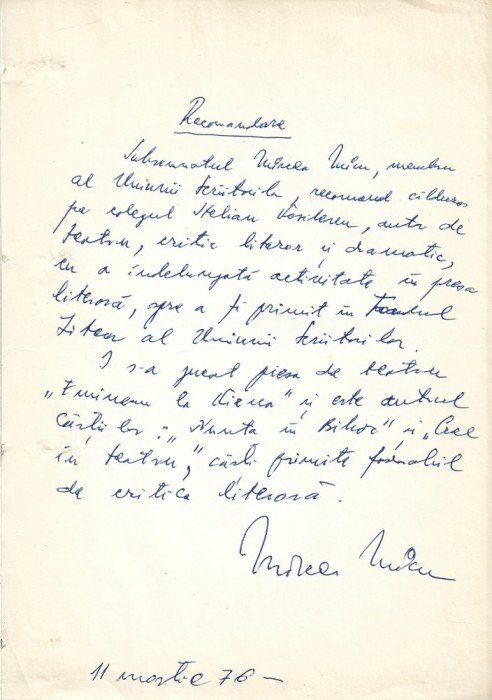 Recomandare
Subsemnatul Mircea Micu, membru
al Uniunii Scriitorilor, recomand călduros
pe colegul Stelian Vasilescu, autor de
teatru, critic literar și dramatic,
cu o îndelungată activitate în presa
literară, spre a fi primit în Fondul
Literar al Uniunii Scriitorilor.
I s-a jucat piesa de teatru
„Eminescu la Viena” și este autorul
cărților: „Nunta în Bihor” și
în teatru”, cărți primite favorabil
de critica literară.
Mircea Micu
11 martie 76 –